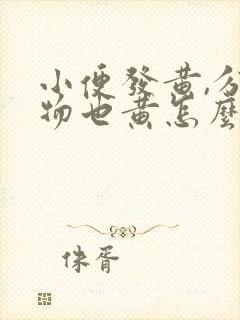 小便發黃,分
物也黃怎麼
侏胥